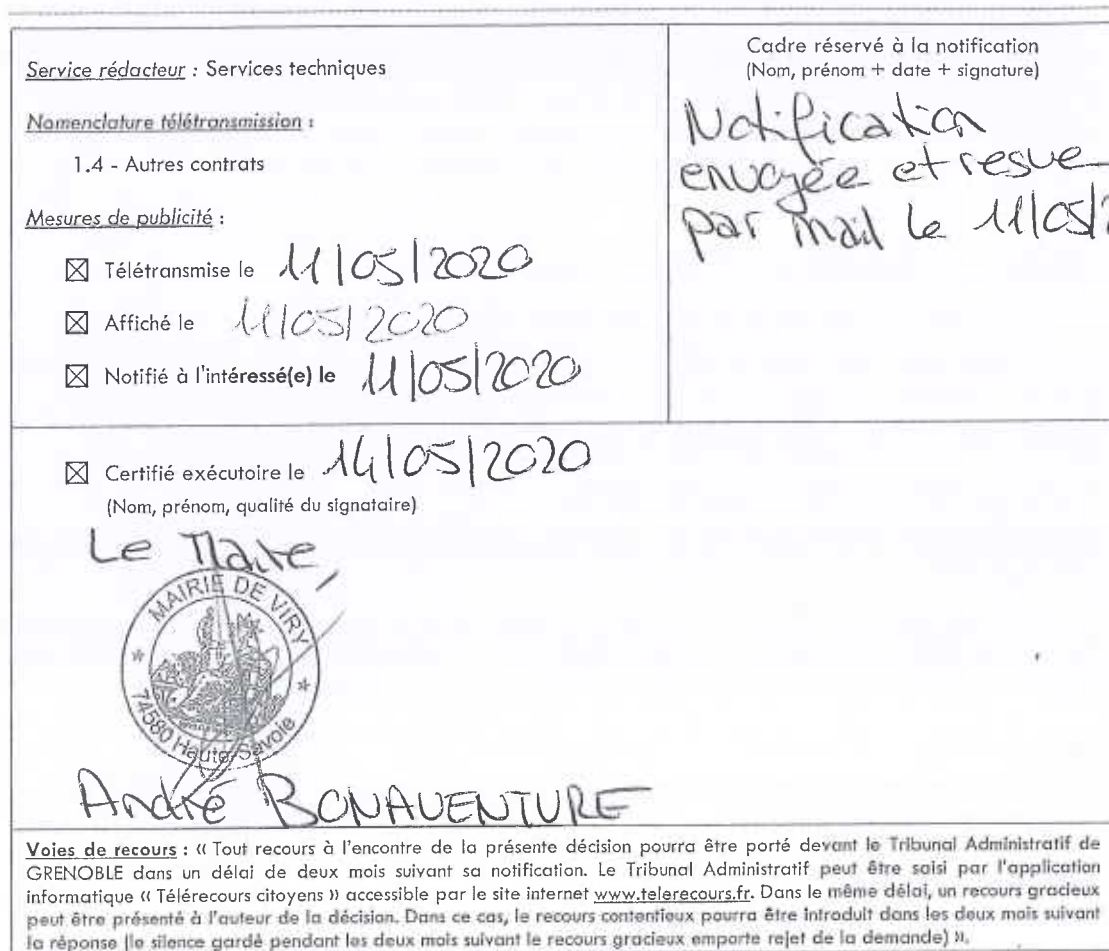 Service rédacteur : Services techniques
Nomenclature télétransmission :
1.4 - Autres contrats
Mesures de publicité :
☒ Télétransmise le 11/05/2020
☒ Affiché le 11/05/2020
☒ Notifié à l'intéressé(e) le 11/05/2020
Cadre réservé à la notification
(Nom, prénom + date + signature)
Notification
envoyée et resue
par mail le 11/05/2
☒ Certifié exécutoire le 14/05/2020
(Nom, prénom, qualité du signataire)
Le Maire,
MAIRIE DE VIRY
74580 Haute-Savoie
André BONAVENTURE
Voies de recours : « Tout recours à l'encontre de la présente décision pourra être porté devant le Tribunal Administratif de
GRENOBLE dans un délai de deux mois suivant sa notification. Le Tribunal Administratif peut être saisi par l'application
informatique « Télérecours citoyens » accessible par le site internet www.telerecours.fr. Dans le même délai, un recours gracieux
peut être présenté à l'auteur de la décision. Dans ce cas, le recours contentieux pourra être introduit dans les deux mois suivant
la réponse (le silence gardé pendant les deux mois suivant le recours gracieux emporte rejet de la demande) ».